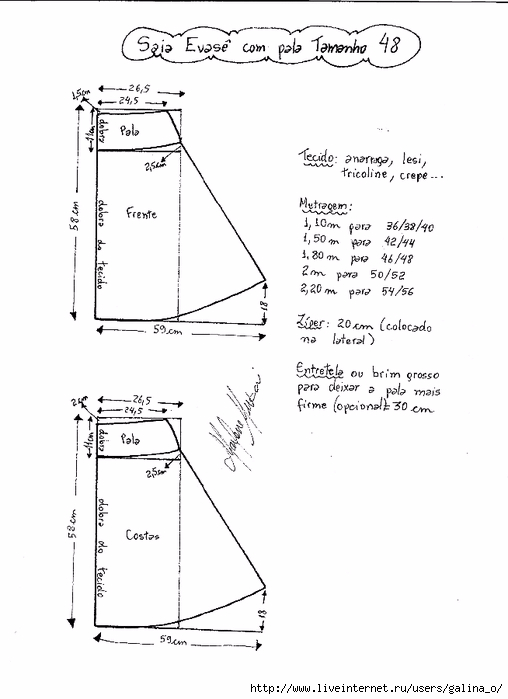 Saia Evasê com pala Tamanho 48
26,5
1,5cm
24,5
11cm
dobra
Pala
2,5cm
58 cm
dobra do tecido
Frente
18
59 cm
Tecido: anarruga, lesi,
tricoline, crepe...
Metragem:
1,10m para 36/38/40
1,50m para 42/44
1,80m para 46/48
2m para 50/52
2,20m para 54/56
Zíper: 20cm (colocado
na lateral)
Entretela ou brim grosso
para deixar a pala mais
firme (opcional)= 30 cm
26,5
24,5
11cm
dobra
Pala
2,5cm
58 cm
dobra do tecido
Costas
18
59 cm
http://www.liveinternet.ru/users/galina_o/